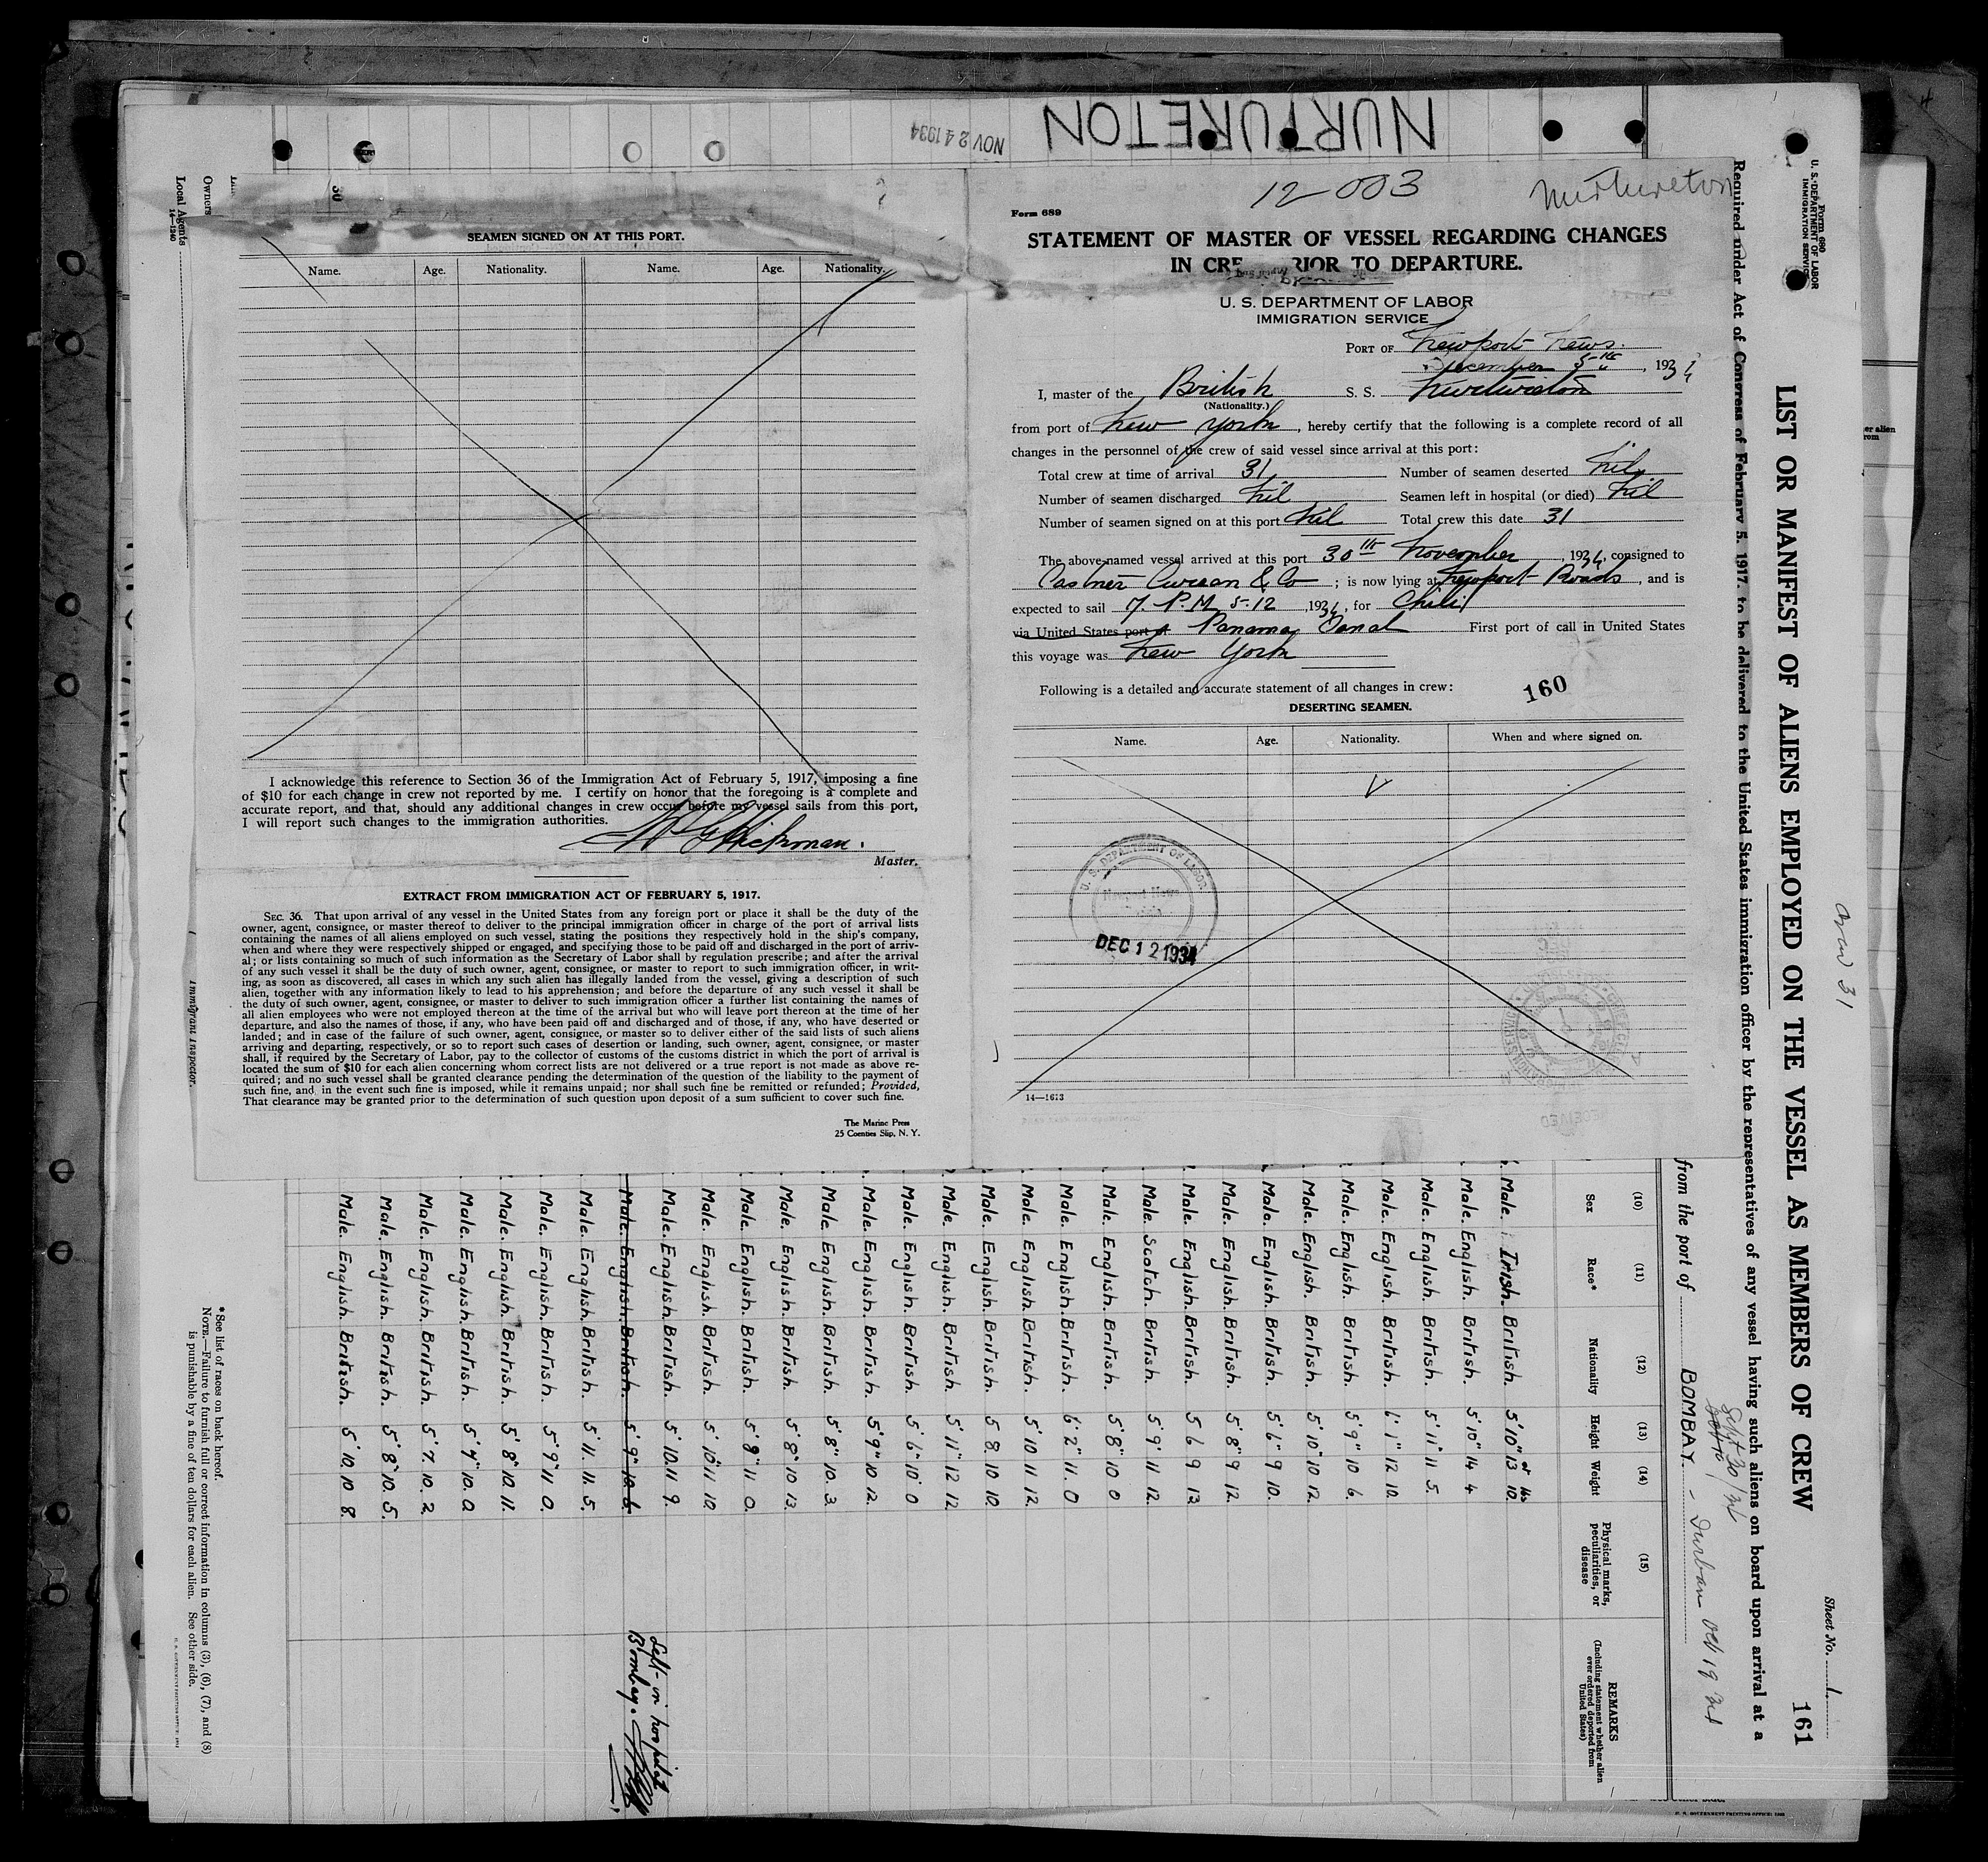 NURTURETON
NOV 24 1934
Local Agents
14—1240
Owners
30
SEAMEN SIGNED ON AT THIS PORT.
Name. Age. Nationality. Name. Age. Nationality.
I acknowledge this reference to Section 36 of the Immigration Act of February 5, 1917, imposing a fine
of $10 for each change in crew not reported by me. I certify on honor that the foregoing is a complete and
accurate report, and that, should any additional changes in crew occur before my vessel sails from this port,
I will report such changes to the immigration authorities.
Hickman.
Master.
EXTRACT FROM IMMIGRATION ACT OF FEBRUARY 5, 1917.
SEC. 36. That upon arrival of any vessel in the United States from any foreign port or place it shall be the duty of the
owner, agent, consignee, or master thereof to deliver to the principal immigration officer in charge of the port of arrival lists
containing the names of all aliens employed on such vessel, stating the positions they respectively hold in the ship's company,
when and where they were respectively shipped or engaged, and specifying those to be paid off and discharged in the port of arriv-
al; or lists containing so much of such information as the Secretary of Labor shall by regulation prescribe; and after the arrival
of any such vessel it shall be the duty of such owner, agent, consignee, or master to report to such immigration officer, in writ-
ing, as soon as discovered, all cases in which any such alien has illegally landed from the vessel, giving a description of such
alien, together with any information likely to lead to his apprehension; and before the departure of any such vessel it shall be
the duty of such owner, agent, consignee, or master to deliver to such immigration officer a further list containing the names of
all alien employees who were not employed thereon at the time of the arrival but who will leave port thereon at the time of her
departure, and also the names of those, if any, who have been paid off and discharged and of those, if any, who have deserted or
landed; and in case of the failure of such owner, agent, consignee, or master so to deliver either of the said lists of such aliens
arriving and departing, respectively, or so to report such cases of desertion or landing, such owner, agent, consignee, or master
shall, if required by the Secretary of Labor, pay to the collector of customs of the customs district in which the port of arrival is
located the sum of $10 for each alien concerning whom correct lists are not delivered or a true report is not made as above re-
quired; and no such vessel shall be granted clearance pending the determination of the question of the liability to the payment of
such fine, and in the event such fine is imposed, while it remains unpaid; nor shall such fine be remitted or refunded; Provided,
That clearance may be granted prior to the determination of such question upon deposit of a sum sufficient to cover such fine.
The Marine Press
25 Coenties Slip, N. Y.
Immigrant Inspector.
12-003
Nurtureton
Form 689
STATEMENT OF MASTER OF VESSEL REGARDING CHANGES
IN CRE RIOR TO DEPARTURE.
U. S. DEPARTMENT OF LABOR
IMMIGRATION SERVICE
PORT OF Newport News.
December 5th, 1934
I, master of the British S. S. Nurtureton
(Nationality.)
from port of New York, hereby certify that the following is a complete record of all
changes in the personnel of the crew of said vessel since arrival at this port:
Total crew at time of arrival 31 Number of seamen deserted Nil
Number of seamen discharged Nil Seamen left in hospital (or died) Nil
Number of seamen signed on at this port Nil Total crew this date 31
The above-named vessel arrived at this port 30th November, 1934, consigned to
Castner Curran & Co; is now lying at Newport Roads, and is
expected to sail 7. P.M. 5-12, 1934, for Chili
via United States port of Panama Canal First port of call in United States
this voyage was New York
Following is a detailed and accurate statement of all changes in crew:
160
DESERTING SEAMEN.
Name. Age. Nationality. When and where signed on.
U. S. DEPARTMENT OF LABOR
Newport News
DEC 12 1934
14—1673
Form 680
U. S. DEPARTMENT OF LABOR
IMMIGRATION SERVICE
Sheet No. 1.
161
LIST OR MANIFEST OF ALIENS EMPLOYED ON THE VESSEL AS MEMBERS OF CREW
Required under Act of Congress of February 5, 1917, to be delivered to the United States immigration officer by the representatives of any vessel having such aliens on board upon arrival at a
from the port of BOMBAY - Durban Oct 19 34
Sept 30/34
(10) (11) (12) (13) (14) (15)
Sex Race* Nationality Height Weight Physical marks, peculiarities, or disease
REMARKS
(Including statement whether alien ever ordered deported from United States)
Male. Irish. British. 5'10" 13 10.
Male. English. British. 5'10" 14 4
Male. English. British. 5'11" 11 5.
Male. English. British. 6'1" 12 10.
Male. English. British. 5'9" 10 6.
Male. English. British. 5'10" 10 12.
Male. English. British. 5'6" 9 10.
Male. English. British. 5'8" 9 12.
Male. English. British. 5 6 9 13
Male. Scotch. British. 5'9" 11 12.
Male. English. British. 5'8" 10 0
Male. English. British. 6'2" 11. 0
Male. English. British. 5'10 11 12.
Male. English. British. 5 8. 10 10.
Male. English. British. 5'11" 12 12.
Male. English. British. 5'6" 10 0
Male. English. British. 5'9" 10 12.
Male. English. British. 5'8" 10. 3.
Male. English. British. 5'8" 10 13.
Male. English. British. 5'8" 11 0.
Male. English. British. 5'10" 11 10.
Male. English. British. 5'10. 11 9.
Male. English. British. 5'9" 10. 6. Left in hospital
Bombay.
Male. English. British. 5'11. 11. 5.
Male. English. British. 5'9" 11 0.
Male. English. British. 5'8" 10 11.
Male. English. British. 5'4" 10. 0
Male. English. British. 5'7. 10. 2
Male. English. British. 5'8" 10. 5.
Male. English. British. 5'10 10 8.
*See list of races on back hereof.
NOTE.—Failure to furnish full or correct information in columns (3), (6), (7), and (8)
is punishable by a fine of ten dollars for each alien. See other side.